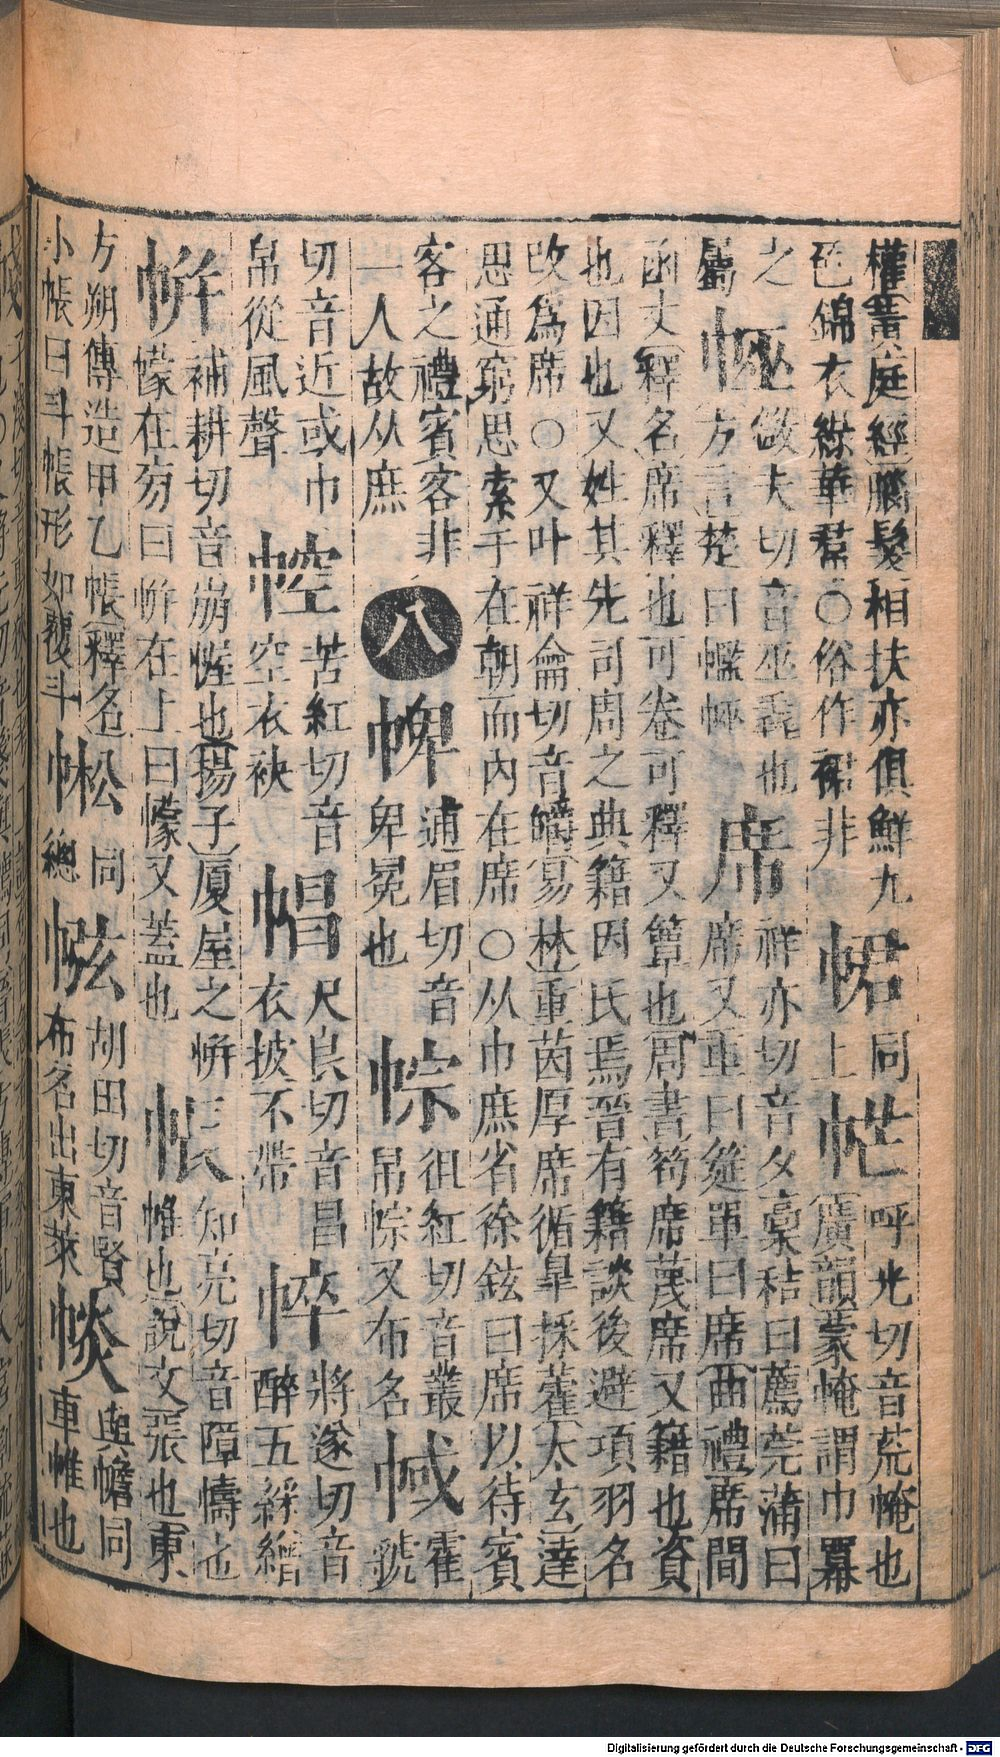 權黃庭經腦髮相扶亦俱鮮九
色錦衣綠華帬○俗作裙非
帬同上
㡆呼光切音荒㡋也
廣韻蒙㡋謂巾羃
之
㠴敬夫切音巫㡔也
方言楚曰㡔㡍
席祥亦切音夕稾秸曰薦莞蒲曰
席又重曰筵單曰席曲禮席間
函丈釋名席釋也可卷可釋又簟也周書筍席蔑席又籍也資
也因也又姓其先司周之典籍因氏焉晉有籍談後避項羽名
改爲席○又叶祥侖切易林重茵厚席循皐採藿太玄達
思通窮思索手在朝而內在席○从巾庶省徐鉉曰席以待賓
客之禮賓客非
一人故从庶
八
㡙逋眉切音
卑冕也
㡑徂紅切音叢
帛悰又布名
㡇霍虢
切音近或巾
帛從風聲
㡏苦紅切音
空衣袂
㡈尺良切音昌
衣披不帶
㡐將遂切音
醉五綵繒
帡補耕切音崩幄也揚子厦屋之帡
幪在旁曰帡在上曰幪又蓋也
帳知亮切音障幬也
帷也說文張也東
方朔傳造甲乙帳釋名
小帳曰斗帳形如覆斗
㡓同
總
㡉胡田切音賢
布名出東萊
㡎與幨同
車帷也
Digitalisierung gefördert durch die Deutsche Forschungsgemeinschaft - DFG